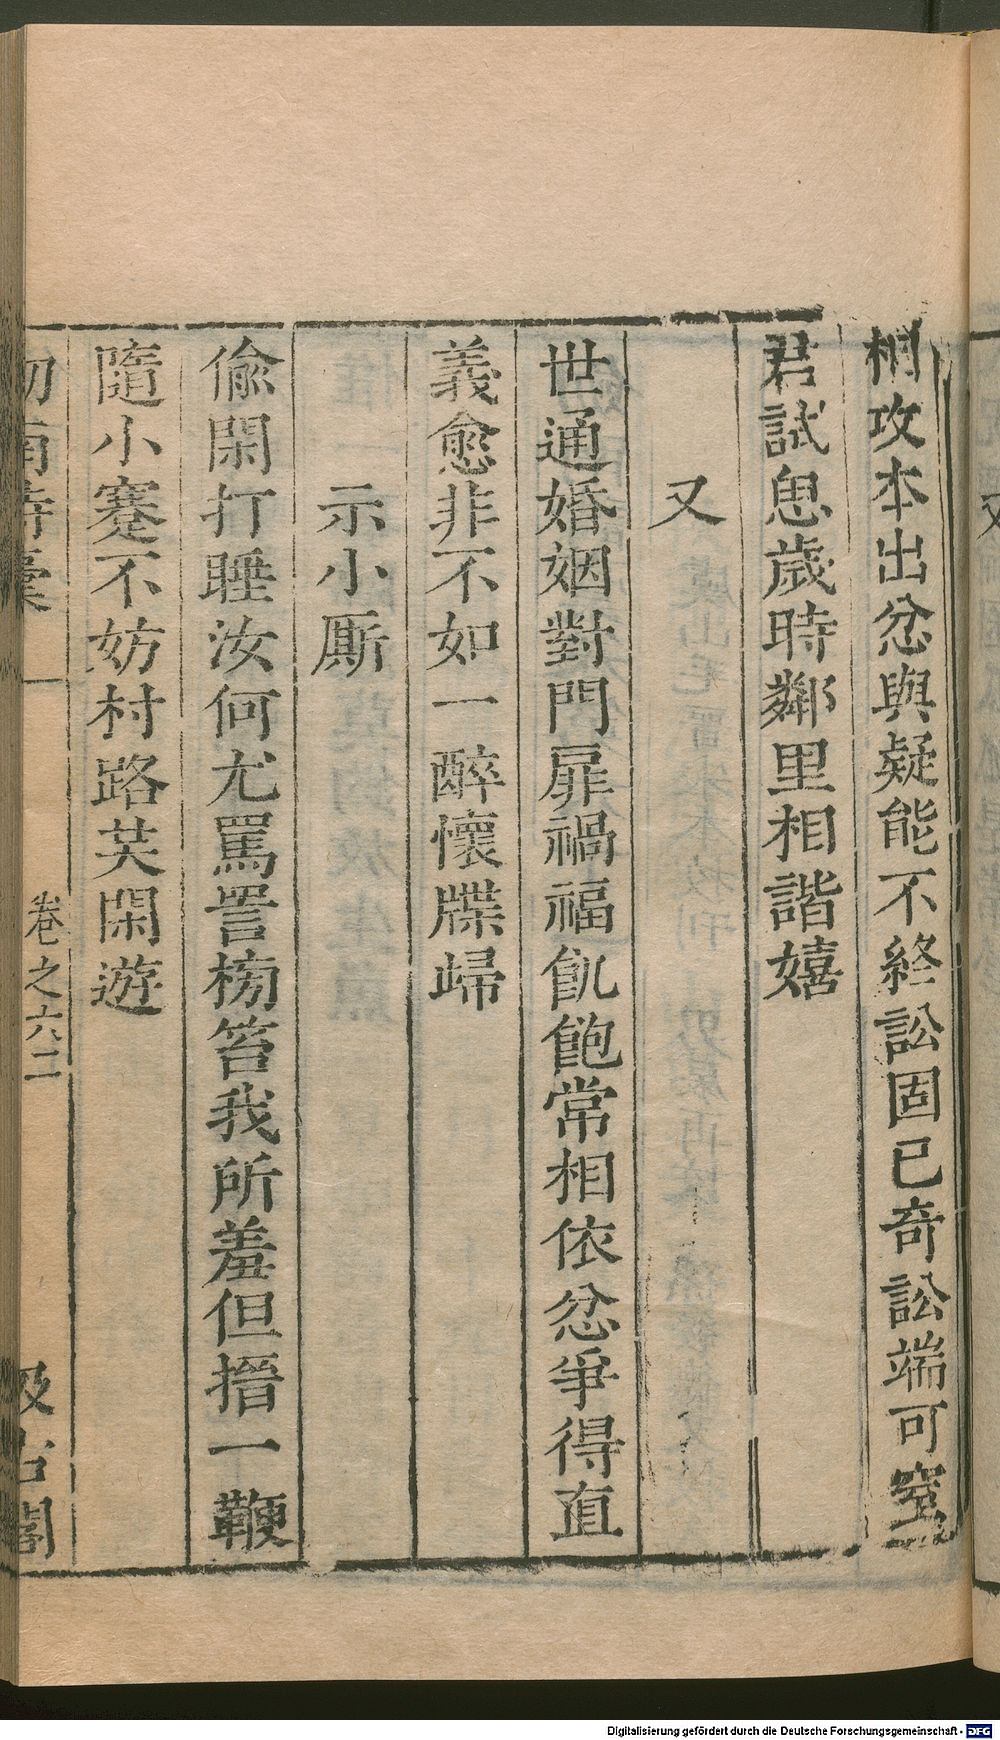 相攻本出忿與疑能不終訟固已奇訟端可窒
君試思歲時鄰里相諧嬉
又
世通婚姻對門扉禍福飢飽常相依忿爭得直
義愈非不如一醉懷牒歸
示小厮
偷閑打睡汝何尤罵詈榜笞我所羞但搢一鞭
隨小蹇不妨村路共閑遊
劒南詩稾
卷之六二
汲古閣
Digitalisierung gefördert durch die Deutsche Forschungsgemeinschaft - DFG